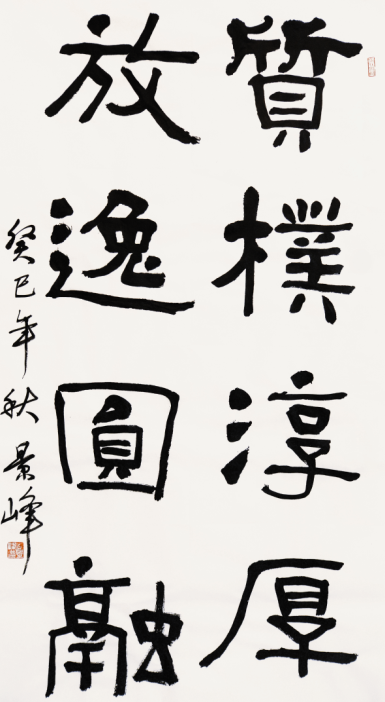 質樸淳厚
放逸圓融
癸巳年秋景峰